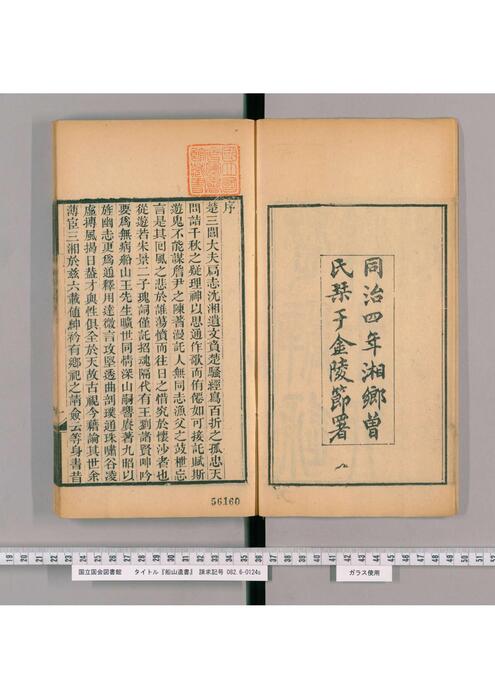 同治四年湘鄉曾
氏栞于金陵節署
序
楚三閭大夫扃志沈湘遺文賁楚騷經爲百折之孤忠天
問詰千秋之疑理神以思通作歌而侑倦如可接託賦斯
遊鬼不能謀詹尹之陳蓍漫託人無同志漁父之鼓枻忘
言是其回風之悲於誰蕩憤而往日之惜究於懷沙者也
從遊若朱景二子瑰詞僅託招魂隔代有王劉諸賢呻吟
要爲無病船山王先生曠世同情深山嗣響賡著九昭以
旌幽志更爲通釋用達微言攻堅透曲剖璞通珠嘯谷淩
虛摶風揭日葢才與性俱全於天故古視今藉論其世余
薄宦三湘於兹六載値紳衿有鄉祀之請僉云等身書昔
56160
19 20 21 22 23 24 25 26 27 28 29 30 31 32 33 34 35 36
国立国会図書館 タイトル『船山遺書』 請求記号 082.6-0124s
ガラス使用